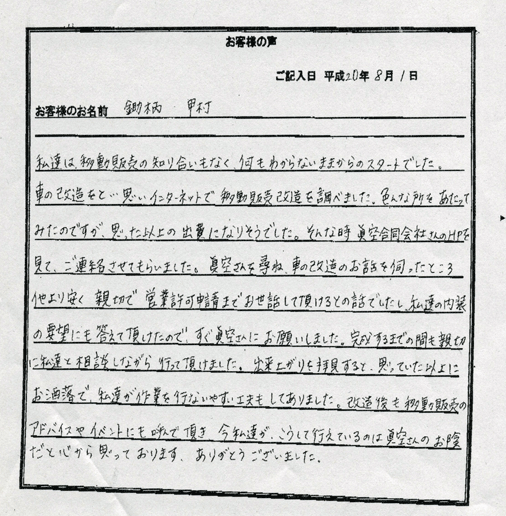 お客様の声
ご記入日 平成20年8月1日
お客様のお名前 鋤柄 甲村
私達は、移動販売の知り合いもなく、何もわからないままからのスタートでした。
車の改造をと…思いインターネットで移動販売改造を調べました。色んな所をあたって
みたのですが、思った以上の出費になりそうでした。そんな時眞空合同会社さんのHPを
見て、ご連絡させてもらいました。眞空さんを尋ね、車の改造のお話を伺ったところ
他より安く 親切で 営業許可申請までお世話して頂けるとの話でしたし、私達の内装
の要望にも答えて頂けたので、すぐ眞空さんにお願いしました。完成するまでの間も親切
に私達と相談しながら 行って頂けました。出来上がりを拝見すると、思っていた以上に
お洒落で、私達が作業を行ないやすい工夫もしてありました。改造後も移動販売の
アドバイスやイベントにも呼んで頂き、今私達が、こうして行えているのは眞空さんのお陰
だと心から思っております。ありがとうございました。